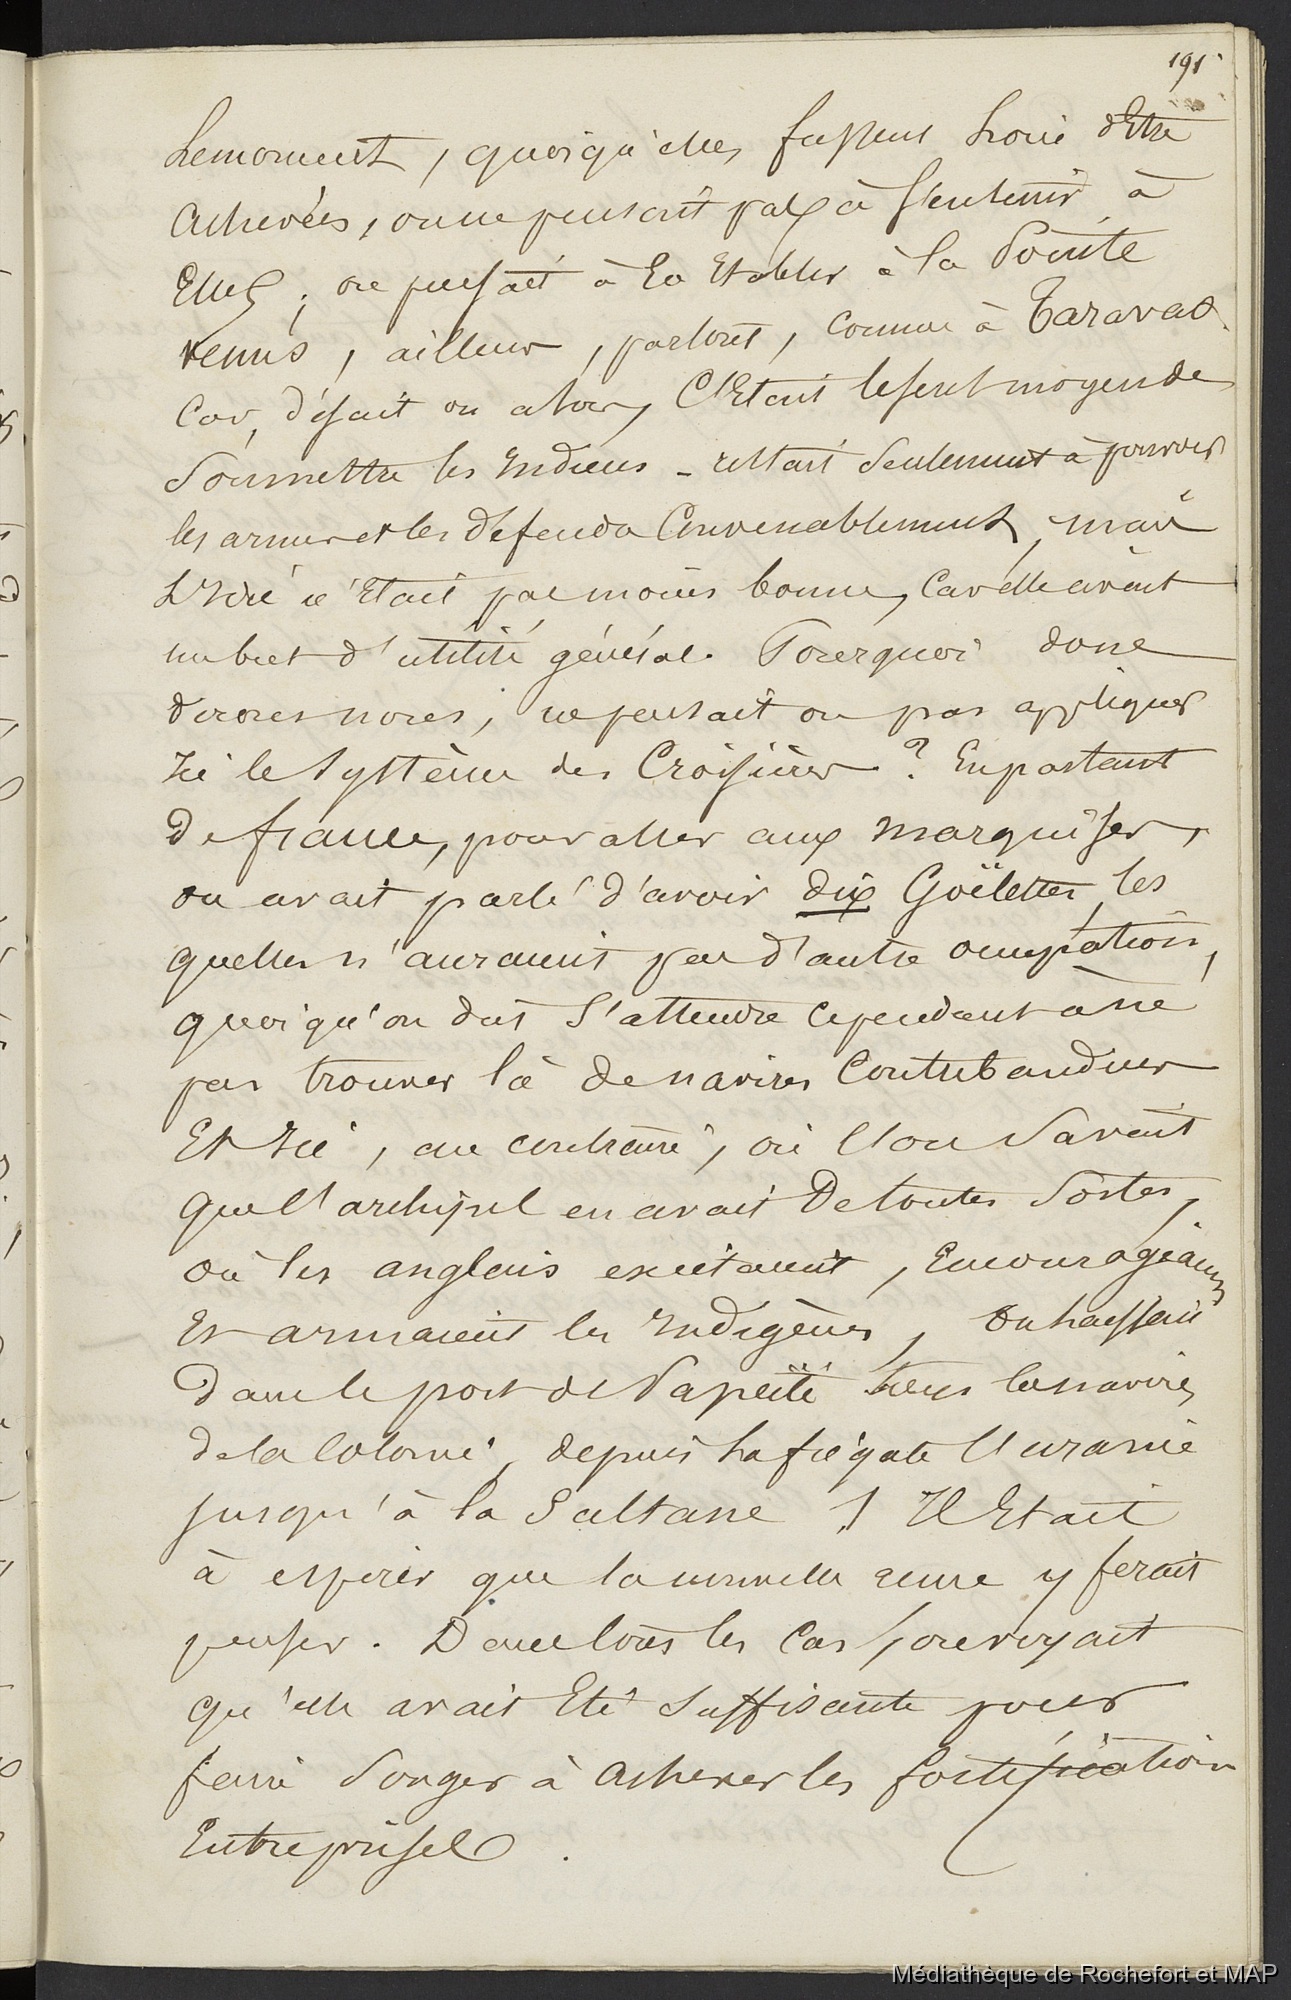 191
Lemoment, quoiqu'elles fussent Loin d'Etre
Achevées, on ne pensait pas à S'entenir à
Elles ; on pensait à En Etablir à la Pointe
venus, ailleur, partout, comme à Taravao.
Car, disait on alors, C'Etait leseul moyen de
Soumettre les Indiens - restait Seulement à pouvoir
les armer et les défendre Convenablement, mais
L'Idée n'Etait pas moins bonne, Car elle avait
un but d'utilité général. Pourquoi donc
disions nous, ne pensait on pas appliquer
Ici le Système des Croisières ? En partant
De france, pour aller aux marquises,
on avait parlé d'avoir dix Goëlettes, les
quelles n'auraient pas d'autre occupation,
quoiqu'on dut S'attendre cependant à ne
pas trouver là de navires Contrebandiers
Et Ici, au contraire, où l'on Savait
que l'archipel en avait De toutes Sortes,
où les anglais excitaient, Encourageaient
Et armaient les Indigènes, On laissait
Dans le port de Papeïti tous les navires
de la Colonie, depuis La frégate l'uranie
jusqu'à la Sultane ! Il Etait
à espérer que la nouvelle ... y ferait
penser. Dans tous les Cas, on voyait
qu'elle avait Eté Suffisante pour
faire Songer à achever les fortification
Entreprises.
Médiathèque de Rochefort et MAP